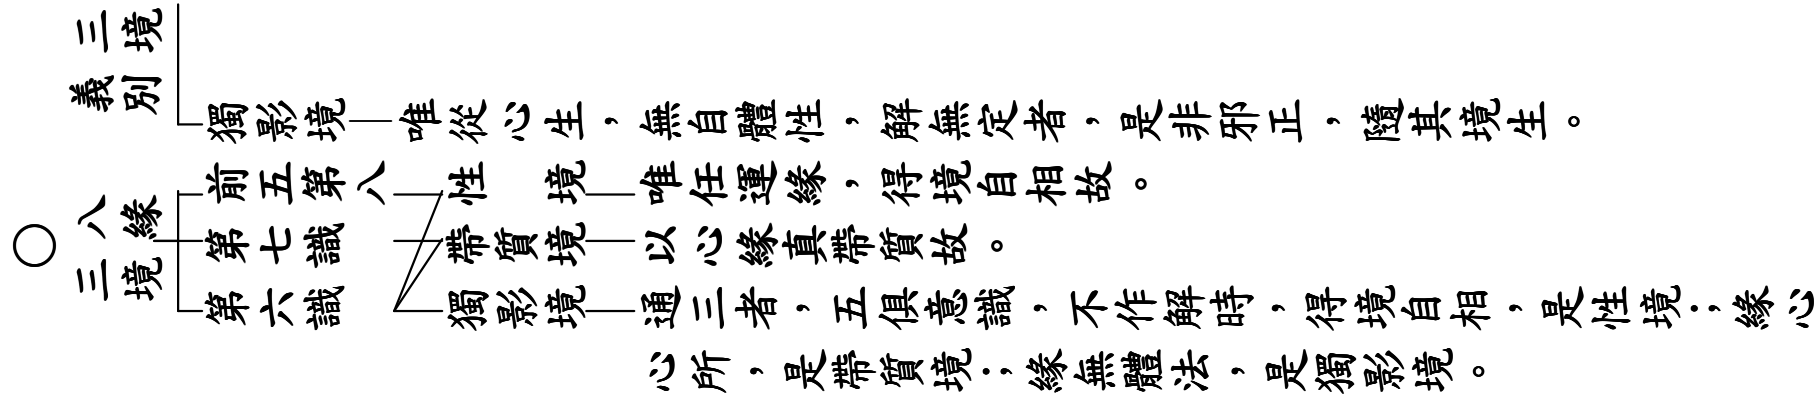 三境
義別
獨影境 唯從心生，無自體性，解無定者，是非邪正，隨其境生。
八緣
三境
前五第八 性 境 唯任運緣，得境自相故。
第七識 帶質境 以心緣真帶質故。
第六識 獨影境 通三者，五俱意識，不作解時，得境自相，是性境；緣心
心所，是帶質境；緣無體法，是獨影境。